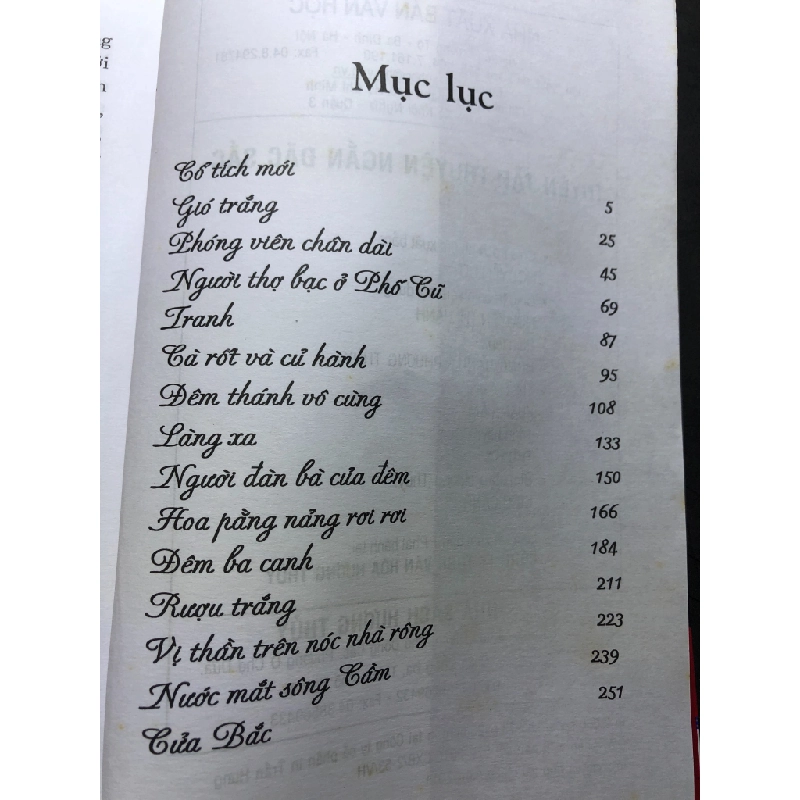 Mục lục
Cổ tích mới 5
Gió trắng 25
Phóng viên chân dài 45
Người thợ bạc ở Phố Cũ 69
Tranh 87
Cà rốt và củ hành 95
Đêm thánh vô cùng 108
Làng xa 133
Người đàn bà của đêm 150
Hoa pằng nảng rơi rơi 166
Đêm ba canh 184
Rượu trắng 211
Vị thần trên nóc nhà rông 223
Nước mắt sông Cầm 239
Cửa Bắc 251